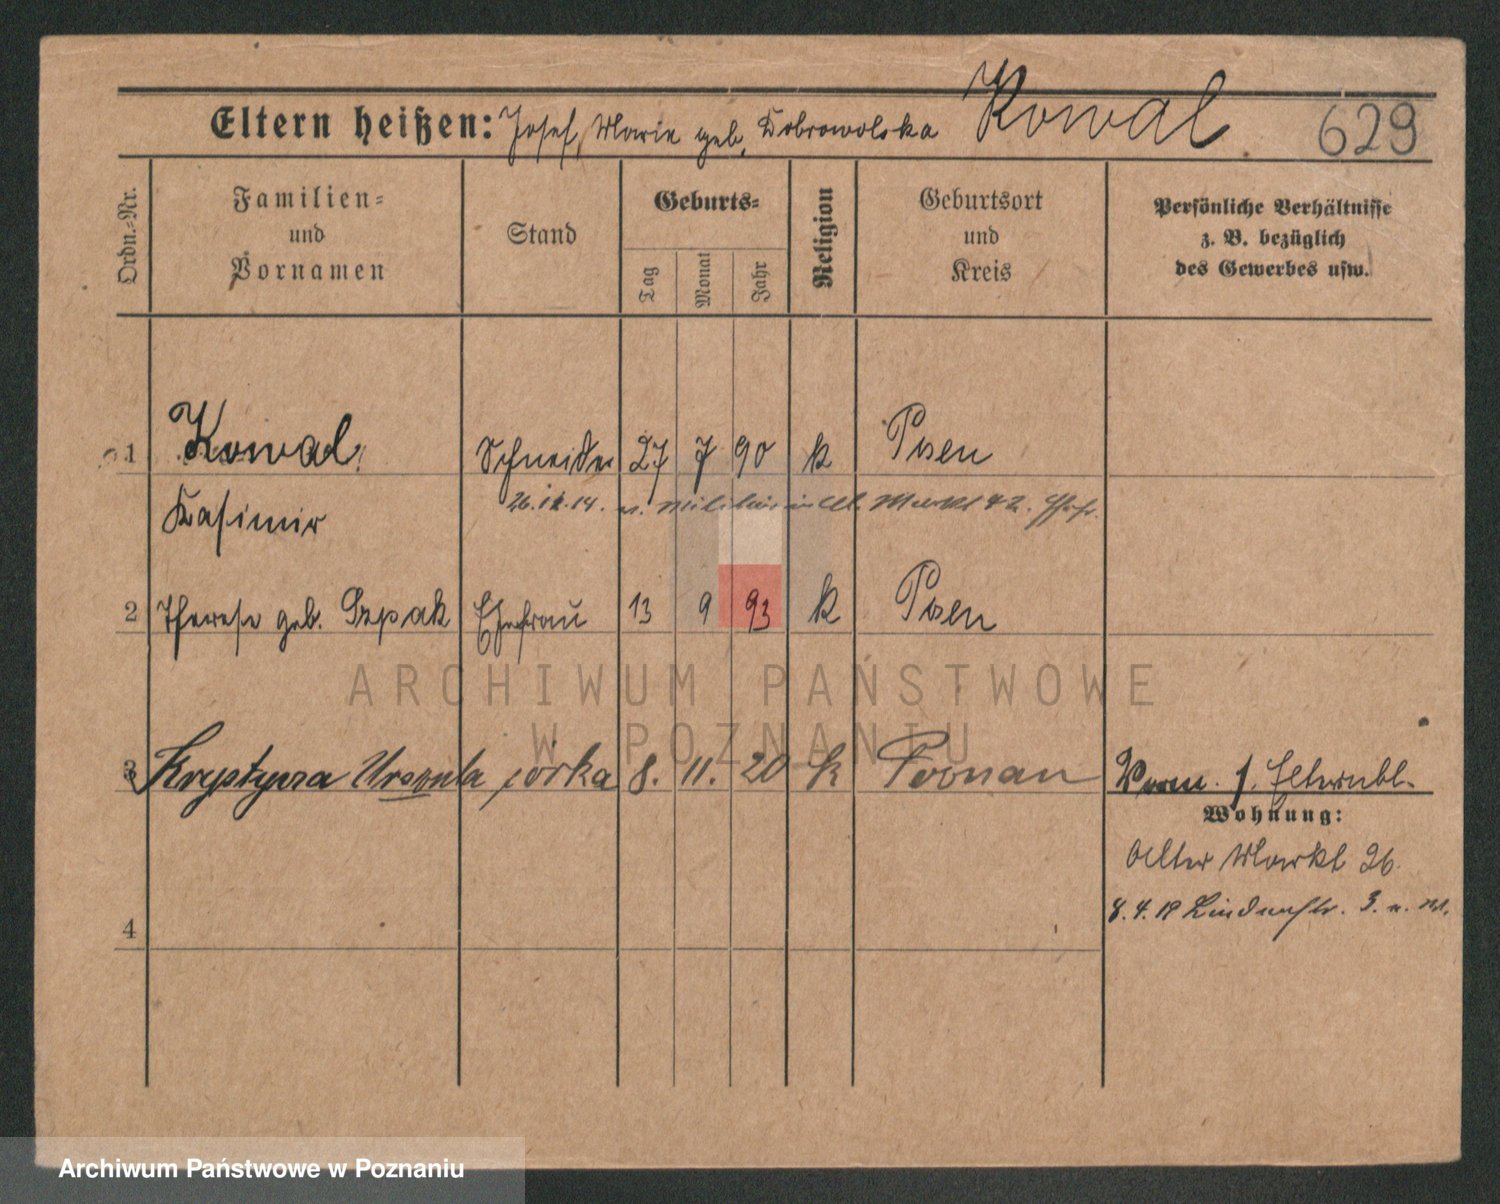 Eltern heißen: Josef, Marie geb. Dobrowolska Kowal 629
Ordn.-Nr.
Familien-
und
Vornamen
Stand
Geburts-
Tag
Monat
Jahr
Religion
Geburtsort
und
Kreis
Persönliche Verhältnisse
z. B. bezüglich
des Gewerbes usw.
1 Kowal Schneider 27 7 90 k Posen
Kasimir
26.12.14. v. Militär Markt 42.
2 Therese geb. Szpak Ehefrau 13 9 93 k Posen
ARCHIWUM PAŃSTWOWE
W POZNANIU
3 Krystyna Urszula córka 8. 11. 20 k Poznań
Verm. s. Elternbl.
Wohnung:
Alter Markt 26.
8.4.18 Lindenstr. 3.
4
Archiwum Państwowe w Poznaniu